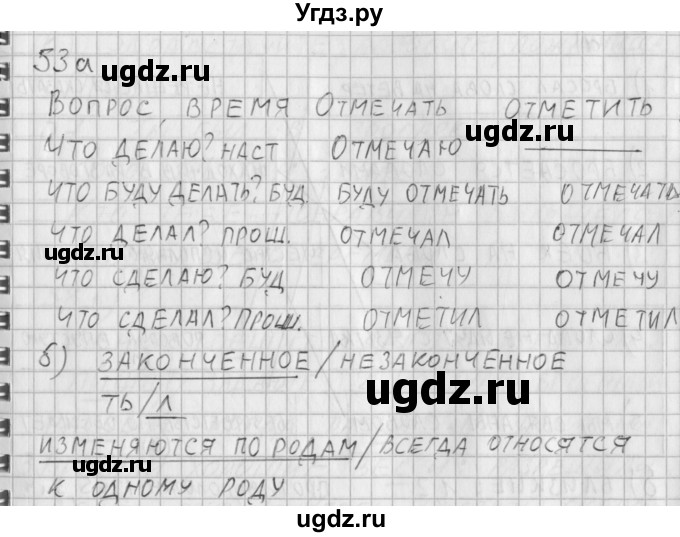 Угдз.ру
53а
ugdz.ru
ВОПРОС, ВРЕМЯ ОТМЕЧАТЬ ОТМЕТИТЬ
ugdz.ru
ЧТО ДЕЛАЮ? НАСТ ОТМЕЧАЮ
ЧТО БУДУ ДЕЛАТЬ? БУД. БУДУ ОТМЕЧАТЬ ОТМЕЧАТЬ
ЧТО ДЕЛАЛ? ПРОШ. ОТМЕЧАЛ ОТМЕЧАЛ
ugdz.ru ugdz.ru
ЧТО СДЕЛАЮ? БУД ОТМЕЧУ ОТМЕЧУ
ЧТО СДЕЛАЛ? ПРОШ. ОТМЕТИЛ ОТМЕТИЛ
б) ЗАКОНЧЕННОЕ / НЕЗАКОНЧЕННОЕ
ugdz.ru
ТЬ/Л
ИЗМЕНЯЮТСЯ ПО РОДАМ/ВСЕГДА ОТНОСЯТСЯ
ugdz.ru ugdz.ru
К ОДНОМУ РОДУ
ugdz.ru